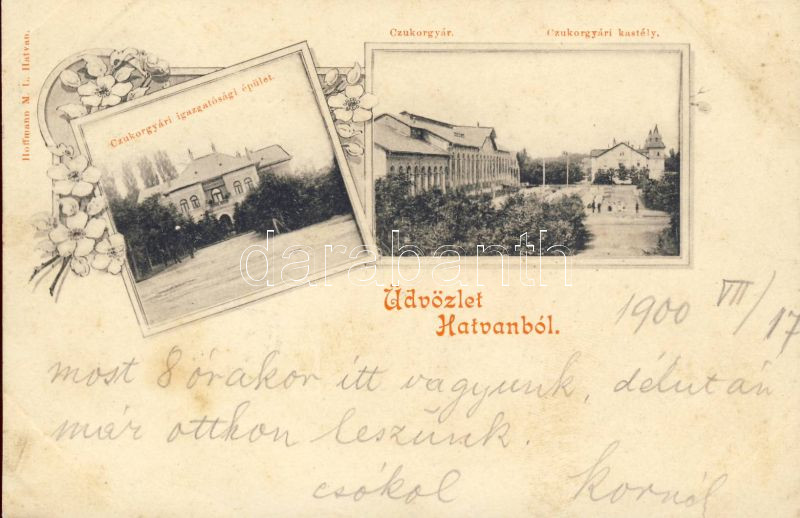 Hoffmann M. L. Hatvan.
Czukorgyári igazgatósági épület.
Czukorgyár. Czukorgyári kastély.
darabanth
Üdvözlet
Hatvanból.
1900 VII/17
most 8 órakor itt vagyunk, délután
már otthon leszünk.
csókol Kornél